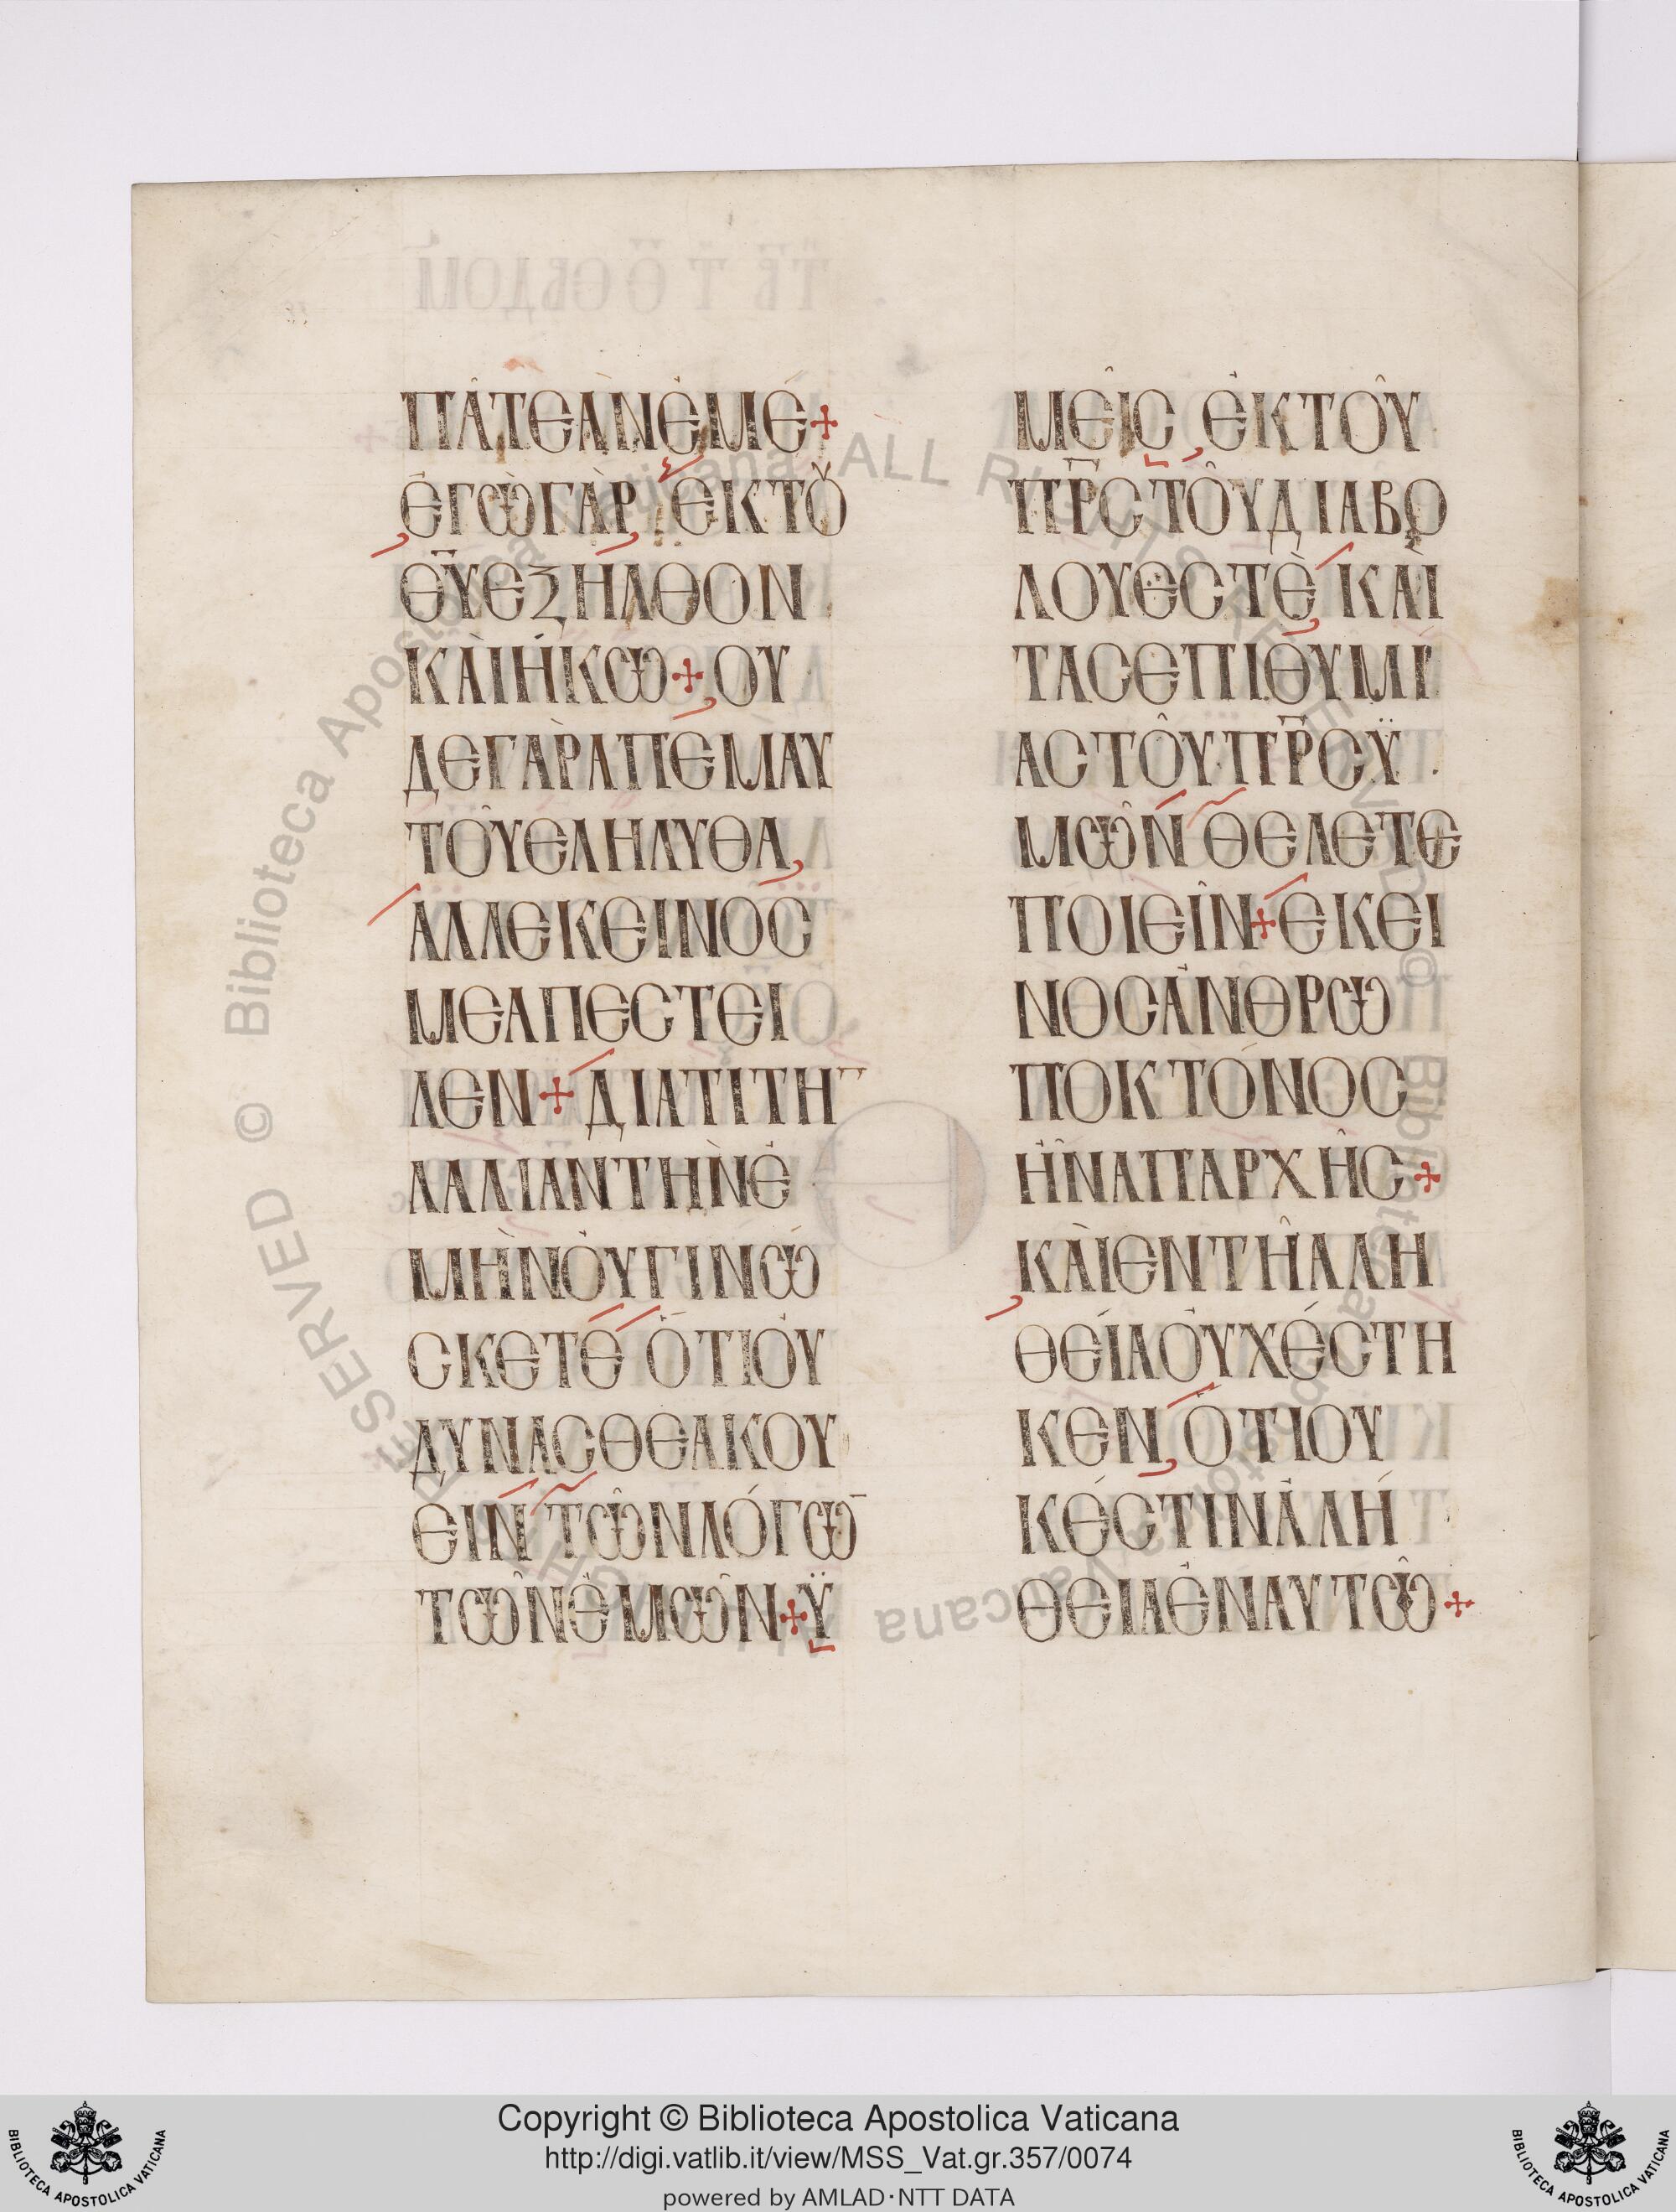 ΠΑ͂ΤΕἈΝἘΜΈ+
ἘΓῺΓᾺΡ ἘΚΤΟΥ͂
Θ̅Υ̅ΕΞΗΛΘΟΝ
ΚΑῚἩΚΩ+ΟΥ
ΔΕΓᾺΡΑΠΕΜΑΥ
ΤΟΥ͂ΕΛΗΛΥΘΑ,
ΑΛΛΕΚΕΙΝΟϹ
ΜΕΑΠΕϹΤΕΙ
ΛΕΝ+ΔΙΑΤΙΤΗ̅
ΛΑΛΙΑΝΤῊΝἘ
ΜῊΝΟΥ̓ΓΙΝΩ
ϹΚΕΤΕ ὉΤΙΟΥ̓
ΔΥΝΑϹΘΕΑΚΟΥ
ΕΙΝ ΤΩ͂ΝΛΌΓΩ̅
ΤΩ͂ΝἘΜΩ͂Ν+Ϋ
ΜΕΙ͂Ϲ, ἘΚΤΟΥ͂
Π̅Ρ̅Ϲ̅ ΤΟΥ͂ΔΙΑΒΟ
ΛΟΥΕϹΤῈ, ΚΑῚ
ΤΑϹΕΠΙΘΥΜΙ
ΑϹΤΟΥ͂Π̅Ρ̅Ϲ̅Ϋ
ΜΩ͂Ν ΘΕΛΕΤΕ
ΠΟΙΕΙ͂Ν+ΕΚΕΙ
ΝΟϹἈΝΘΡΩ
ΠΟΚΤΌΝΟϹ
ἮΝΑΠΑΡΧΗ͂Ϲ+
ΚΑῚΕΝΤΗ͂ΑΛΗ
ΘΕΊΑΟΥ̓ΧΈϹΤΗ
ΚΕΝ, ὉΤΙΟΥ
ΚΈϹΤΙΝἈΛΉ
ΘΕΙΑἘΝΑΥΤΩ͂+
Copyright © Biblioteca Apostolica Vaticana
http://digi.vatlib.it/view/MSS_Vat.gr.357/0074
powered by AMLAD·NTT DATA
BIBLIOTECA APOSTOLICA VATICANA
BIBLIOTECA APOSTOLICA VATICANA